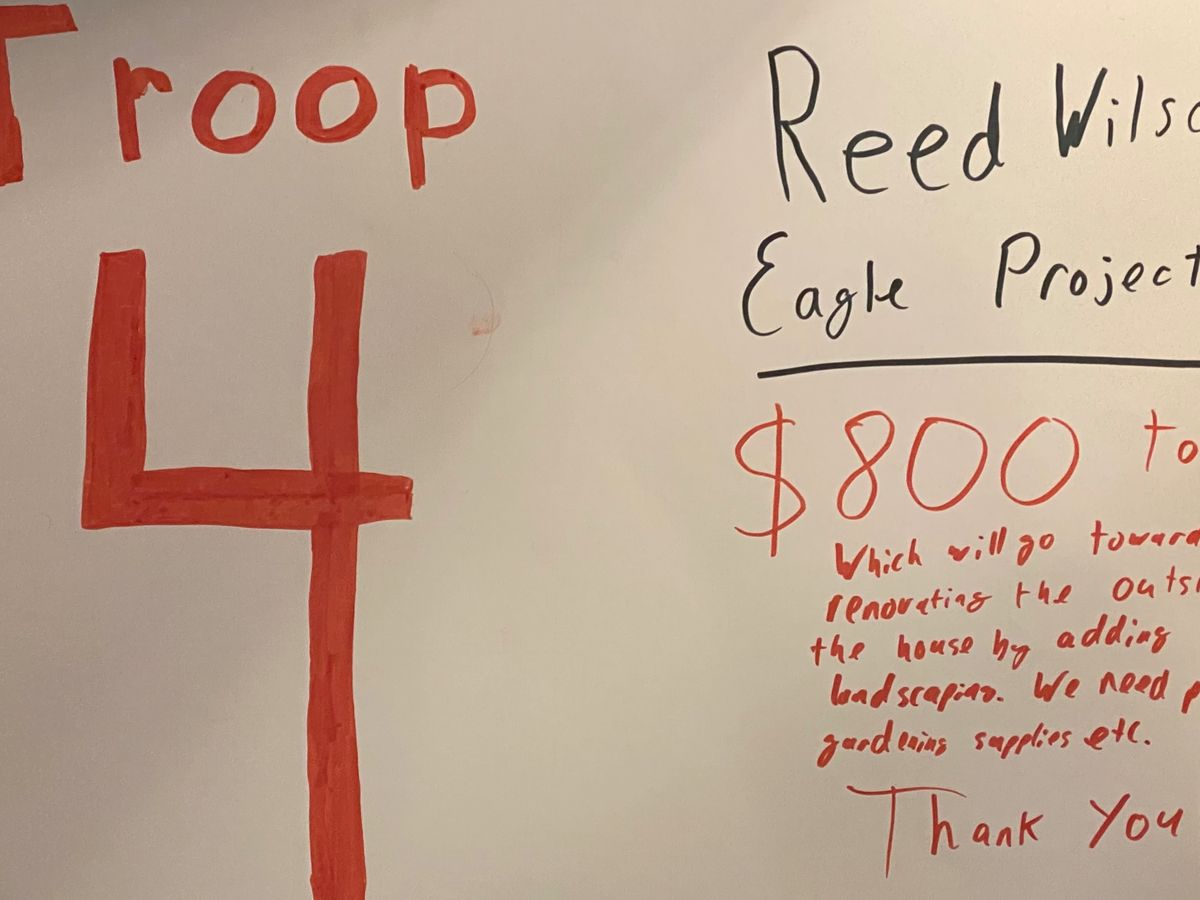 Troop
4
Reed Wilso
Eagle Project
$800 to
Which will go toward
renovating the outsi
the house by adding
landscaping. We need p
gardening supplies etc.
Thank You